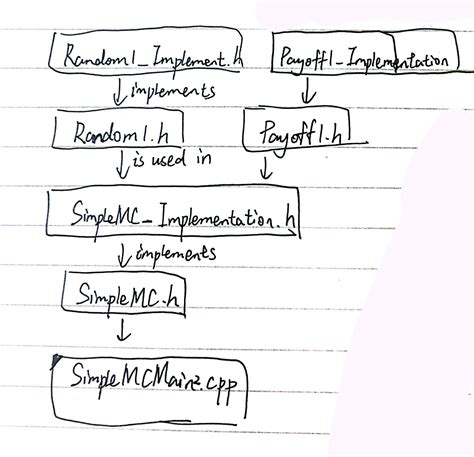 Random1_Implement.h
Payoff1_Implementation
implements
Random1.h
Payoff1.h
is used in
SimpleMC_Implementation.h
implements
SimpleMC.h
SimpleMCMain2.cpp